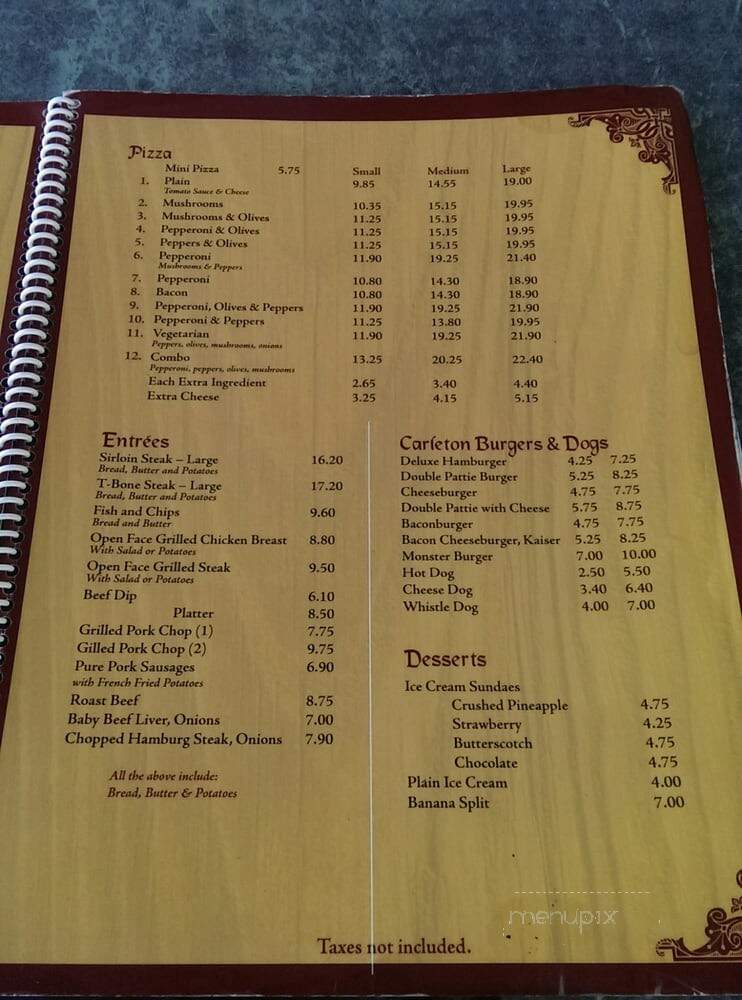 Pizza
Mini Pizza 5.75 Small Medium Large
1. Plain 9.85 14.55 19.00
Tomato Sauce & Cheese
2. Mushrooms 10.35 15.15 19.95
3. Mushrooms & Olives 11.25 15.15 19.95
4. Pepperoni & Olives 11.25 15.15 19.95
5. Peppers & Olives 11.25 15.15 19.95
6. Pepperoni 11.90 19.25 21.40
Mushrooms & Peppers
7. Pepperoni 10.80 14.30 18.90
8. Bacon 10.80 14.30 18.90
9. Pepperoni, Olives & Peppers 11.90 19.25 21.90
10. Pepperoni & Peppers 11.25 13.80 19.95
11. Vegetarian 11.90 19.25 21.90
Peppers, olives, mushrooms, onions
12. Combo 13.25 20.25 22.40
Pepperoni, peppers, olives, mushrooms
Each Extra Ingredient 2.65 3.40 4.40
Extra Cheese 3.25 4.15 5.15
Entrées
Sirloin Steak – Large 16.20
Bread, Butter and Potatoes
T-Bone Steak – Large 17.20
Bread, Butter and Potatoes
Fish and Chips 9.60
Bread and Butter
Open Face Grilled Chicken Breast 8.80
With Salad or Potatoes
Open Face Grilled Steak 9.50
With Salad or Potatoes
Beef Dip 6.10
Platter 8.50
Grilled Pork Chop (1) 7.75
Gilled Pork Chop (2) 9.75
Pure Pork Sausages 6.90
with French Fried Potatoes
Roast Beef 8.75
Baby Beef Liver, Onions 7.00
Chopped Hamburg Steak, Onions 7.90
All the above include:
Bread, Butter & Potatoes
Carleton Burgers & Dogs
Deluxe Hamburger 4.25 7.25
Double Pattie Burger 5.25 8.25
Cheeseburger 4.75 7.75
Double Pattie with Cheese 5.75 8.75
Baconburger 4.75 7.75
Bacon Cheeseburger, Kaiser 5.25 8.25
Monster Burger 7.00 10.00
Hot Dog 2.50 5.50
Cheese Dog 3.40 6.40
Whistle Dog 4.00 7.00
Desserts
Ice Cream Sundaes
Crushed Pineapple 4.75
Strawberry 4.25
Butterscotch 4.75
Chocolate 4.75
Plain Ice Cream 4.00
Banana Split 7.00
menupix
Taxes not included.